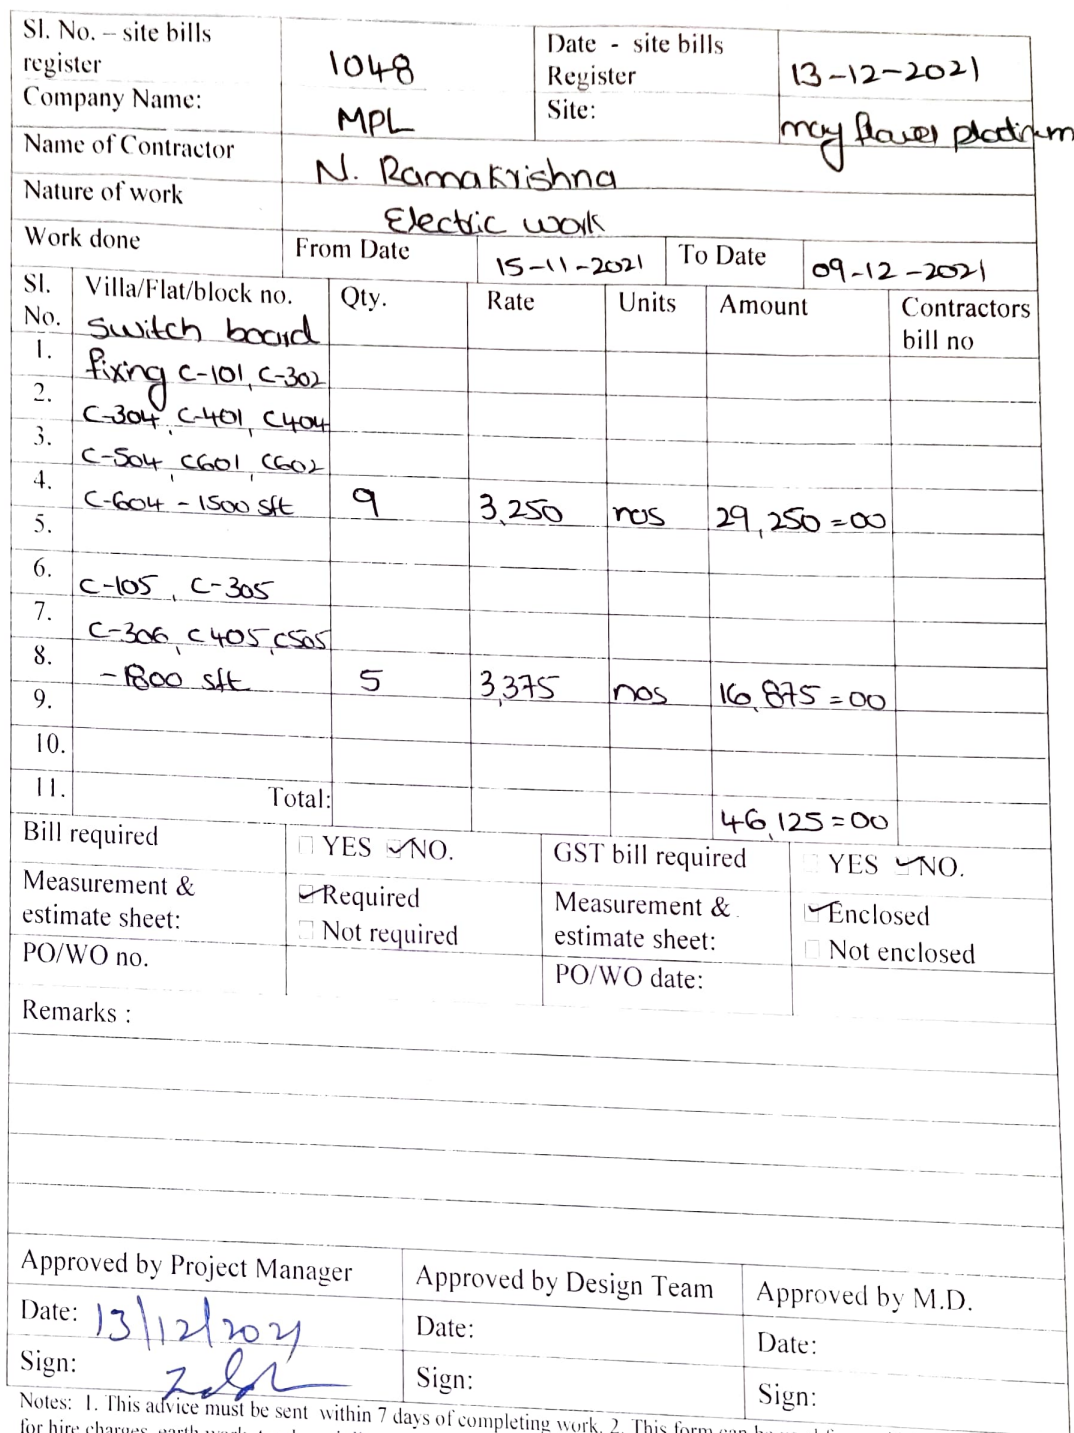 Sl. No. – site bills register 1048 Date - site bills Register 13-12-2021
Company Name: MPL Site: may flower platinum
Name of Contractor N. Ramakrishna
Nature of work Electric work
Work done From Date 15-11-2021 To Date 09-12-2021
Sl. No. Villa/Flat/block no. Qty. Rate Units Amount Contractors bill no
Switch board
1. fixing C-101, C-302
2. C-304, C-401, C404
3. C-504, C601, C602
4. C-604 - 1500 sft 9 3,250 nos 29,250=00
5.
6. C-105, C-305
7. C-306, C405, C505
8. - 1800 sft 5 3,375 nos 16,875=00
9.
10.
11. Total: 46,125=00
Bill required YES NO. GST bill required YES NO.
Measurement & estimate sheet: Required Not required Measurement & estimate sheet: Enclosed Not enclosed
PO/WO no. PO/WO date:
Remarks :
Approved by Project Manager Approved by Design Team Approved by M.D.
Date: 13/12/2021 Date: Date:
Sign: Sign: Sign:
Notes: 1. This advice must be sent within 7 days of completing work. 2. This form can be
for hire charges,